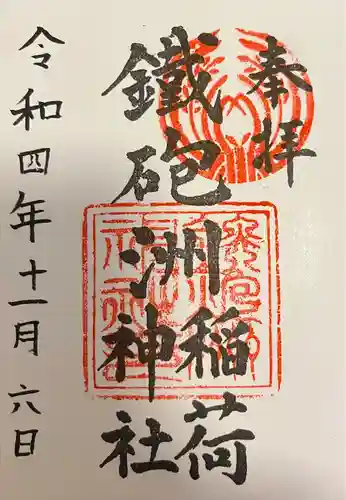 奉拝
鐵砲洲稲荷
神社
令和四年十一月六日